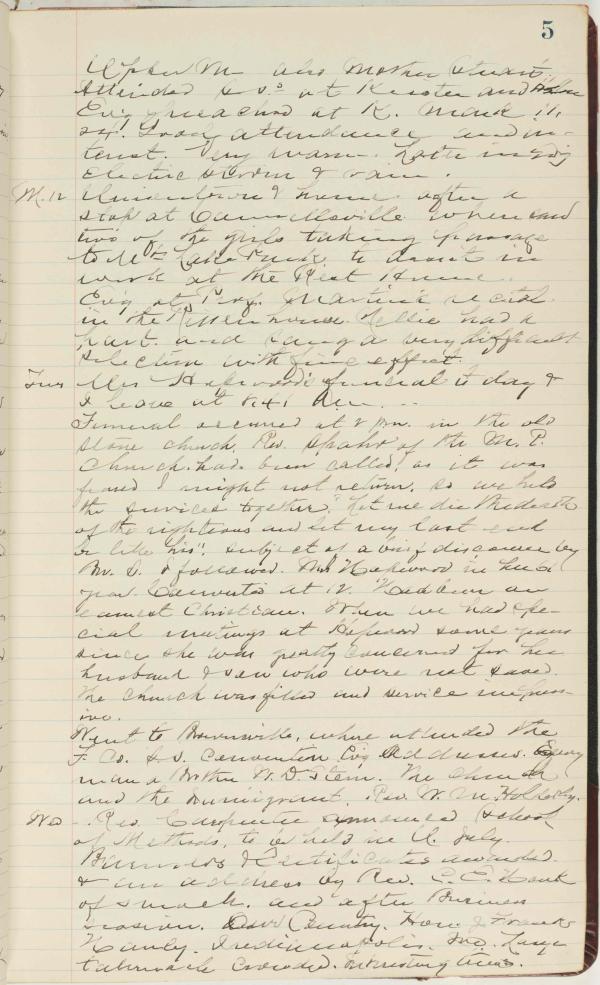 5
also Mother
Attended S.S. at and
Ev'g preached at K. Mark
24. Good attendance and in-
terest. Very warm.
Electric storm & rain.
M. 12 Uniontown & home after a
stop at Connellsville when
two of the girls taking passage
to Mt. Lake Park to assist in
work at the Rest Home.
Ev'g at Prof. Martin's recital
in the Rittenhouse. Nellie had a
part and sang a very difficult
selection with fine effect.
Tues Mrs. Hopwood's funeral to day &
I leave at 8.41 Am.
Funeral occurred at 2 Pm. in the old
stone church. Rev. of the M. E.
Church had been called, as it was
feared I might not return, so we held
the services together. "Let me die the death
of the righteous and let my last end
be like his": subject of a brief discourse by
Mr. S. I followed. Mrs Hopwood in her
year. Converted at 12. Had been an
earnest Christian. When we had spe-
cial meetings at Hopwood some years
since she was greatly concerned for her
husband & son who were not saved.
The church was filled and service impress-
ive.
Went to Brownsville, where attended the
F. Co. S.S. Convention. Ev'g Addresses.
man a Brother W. D. Stem. The Church
and the Immigrant, Rev. W. M.
Wed - Rev. Carpenter announced School
of Methods, to be held in U. July.
Banners & Certificates awarded
& an address by Rev. C. E.
of and after Business
session. Our Country. Hon. J Frank
Hanly. Indianapolis. Large
tabernacle crowded. Interesting times.